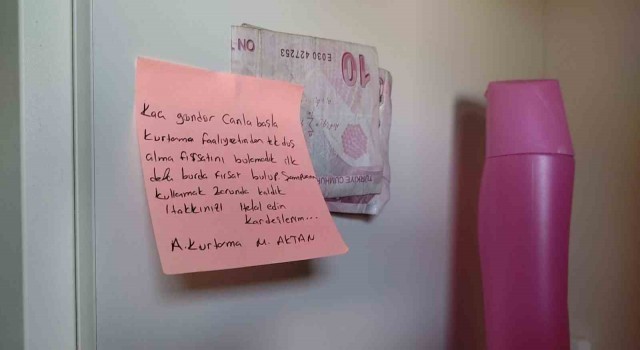 NO
E030 427253
10
TÜRKİYE CUMHU
Kaç gündür Canla başla
kurtarma faaliyetinden tek duş
alma fırsatını bulamadık ilk
defa burda fırsat bulup Şampuanı
kullanmak zorunda kaldık
Hakkınızı Helal edin
kardeşlerim...
A.Kurtarma M. AKTAN